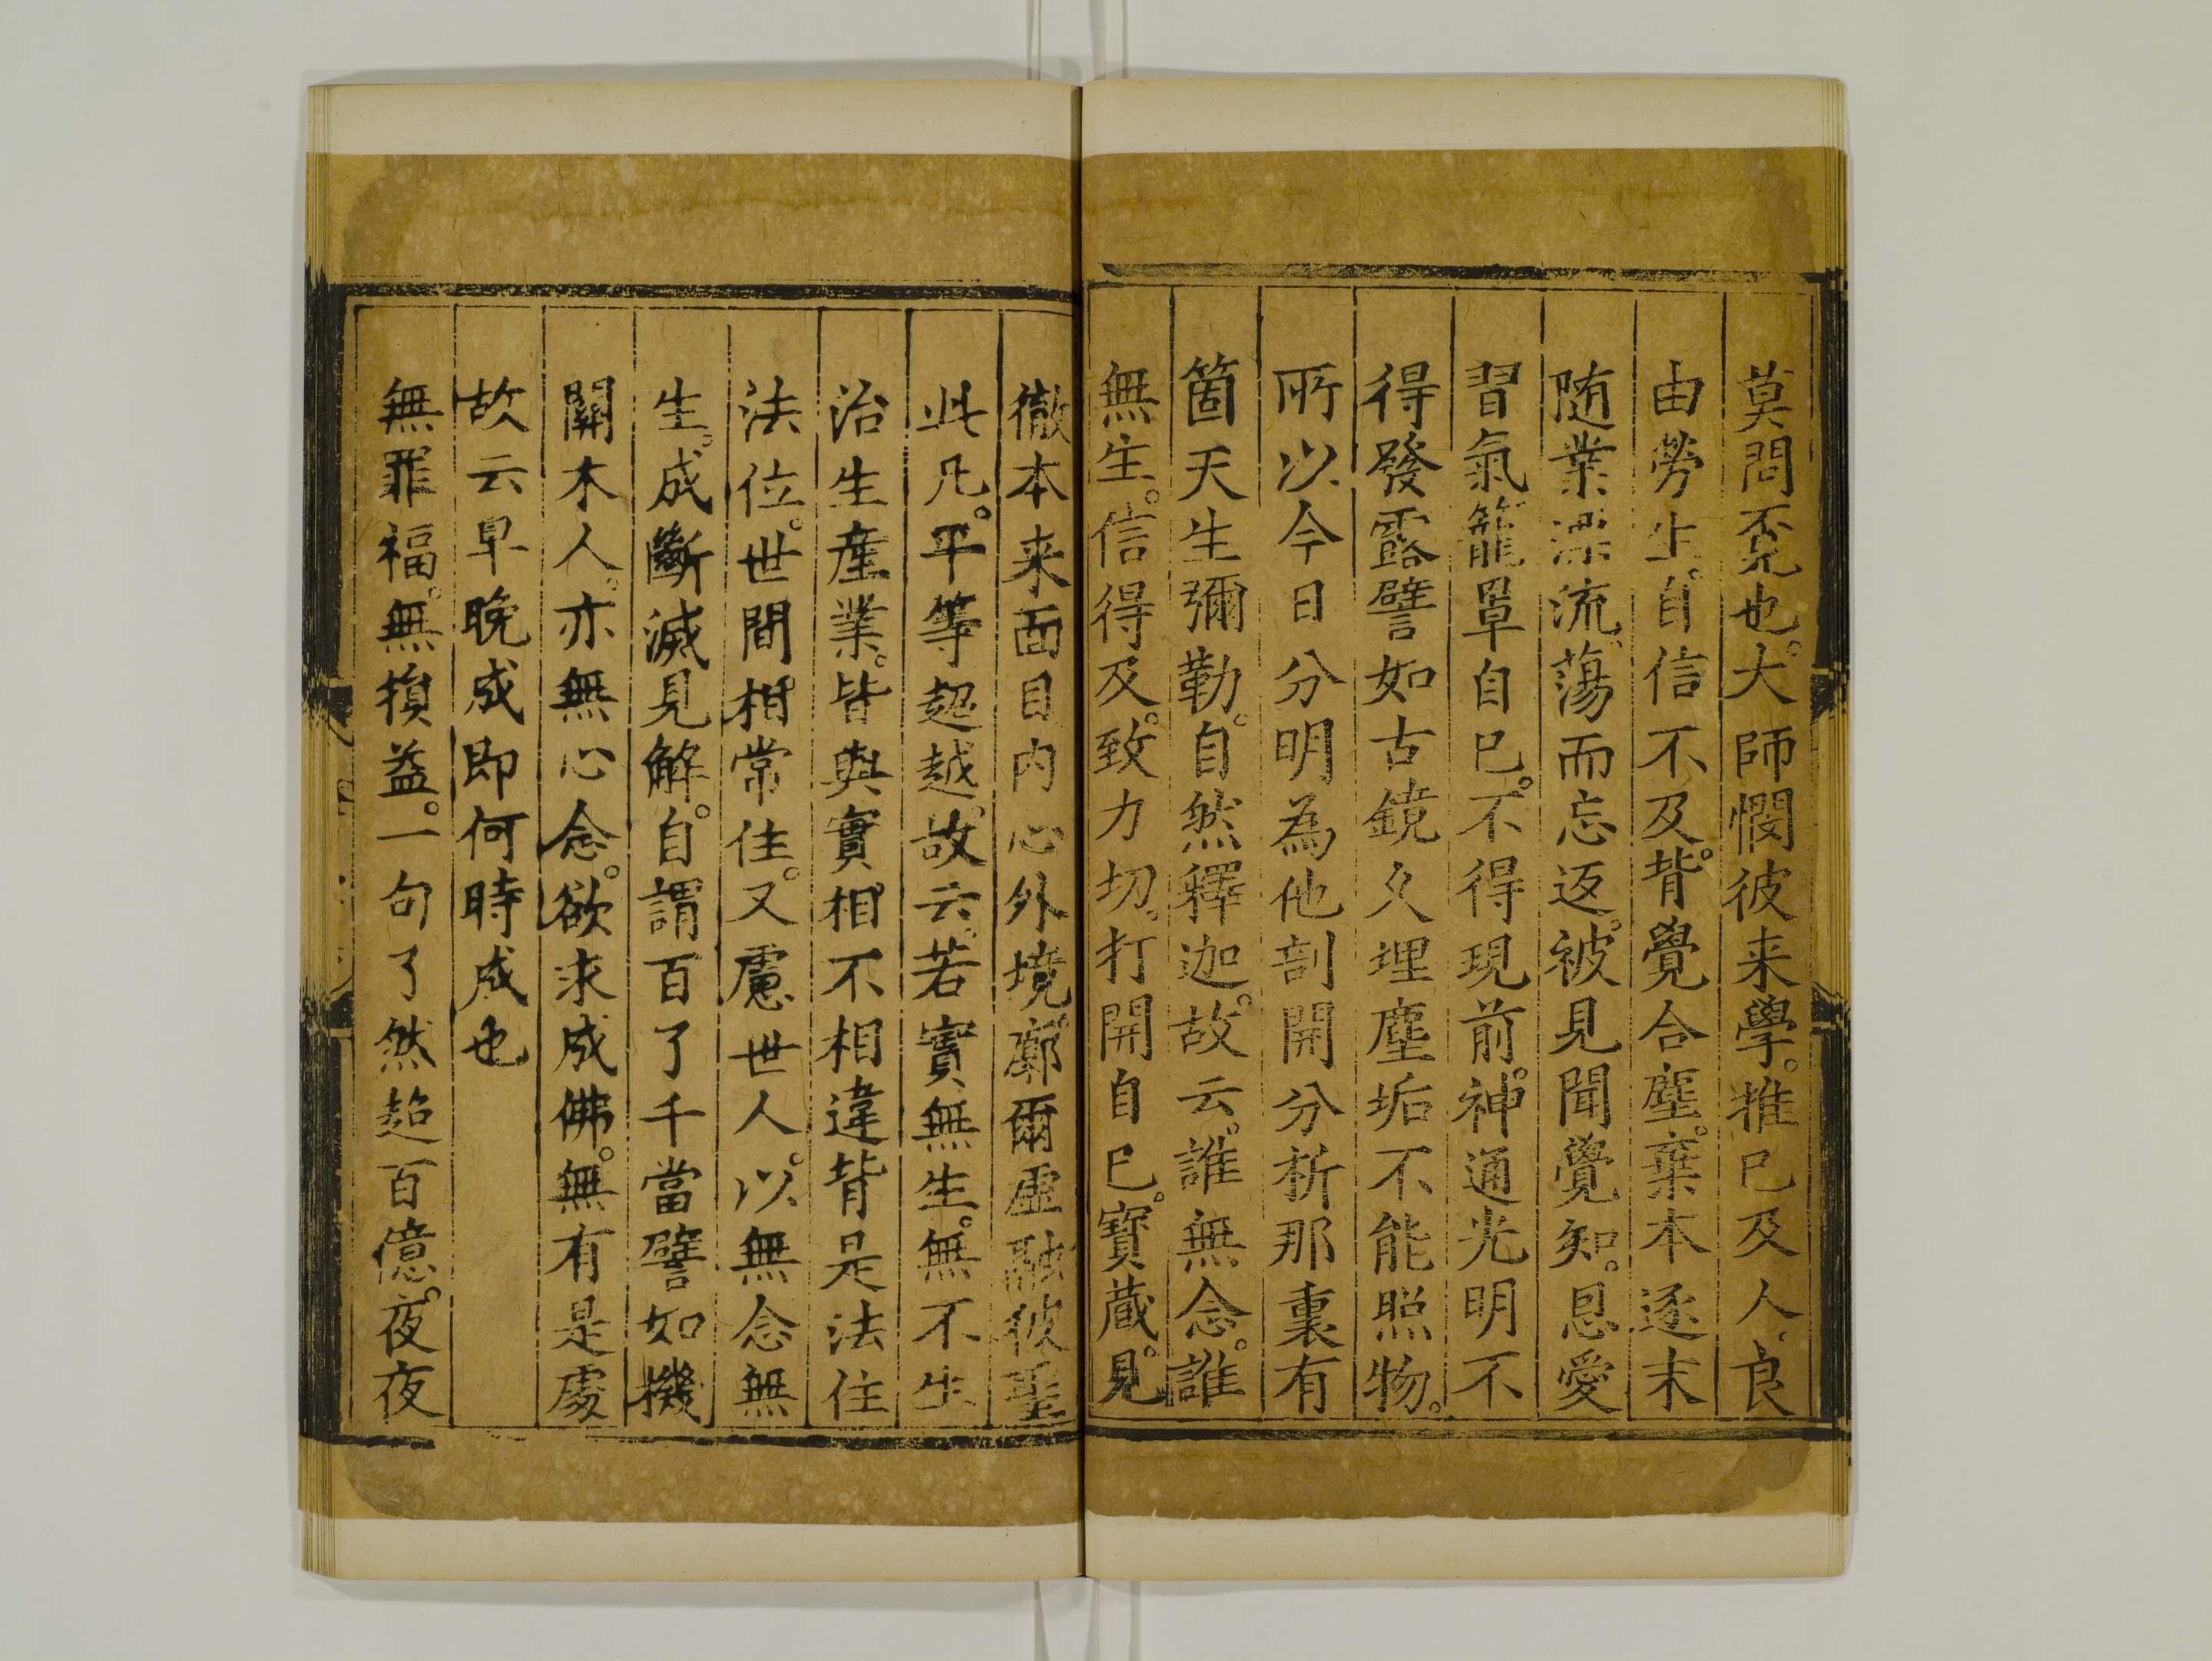 莫問𮗚也。大師憫彼来學。推己及人。良
由勞生。自信不及。背覺合塵。棄本逐末
随業漂流。蕩而忘返。被見聞覺知。恩愛
習氣籠罩自己。不得現前。神通光明不
得發露譬如古鏡久埋塵垢不能照物。
所以今日分明為他剖開分析那裏有
箇天生彌勒。自然釋迦。故云。誰無念。誰
無生。信得及。致力切。打開自己。寶蔵。見
徹本来面目内心外境。廓爾虛融彼聖
此凡。平等超越。故云。若實無生。無不生
治生産業。皆與實相不相違背是法住
法位。世間相常住。又慮世人。以無念無
生。成斷滅見解。自謂百了千當譬如機
關木人。亦無心念。欲求成佛。無有是處
故云早晚成即何時成也
無罪福。無損益。一句了然超百億。夜夜